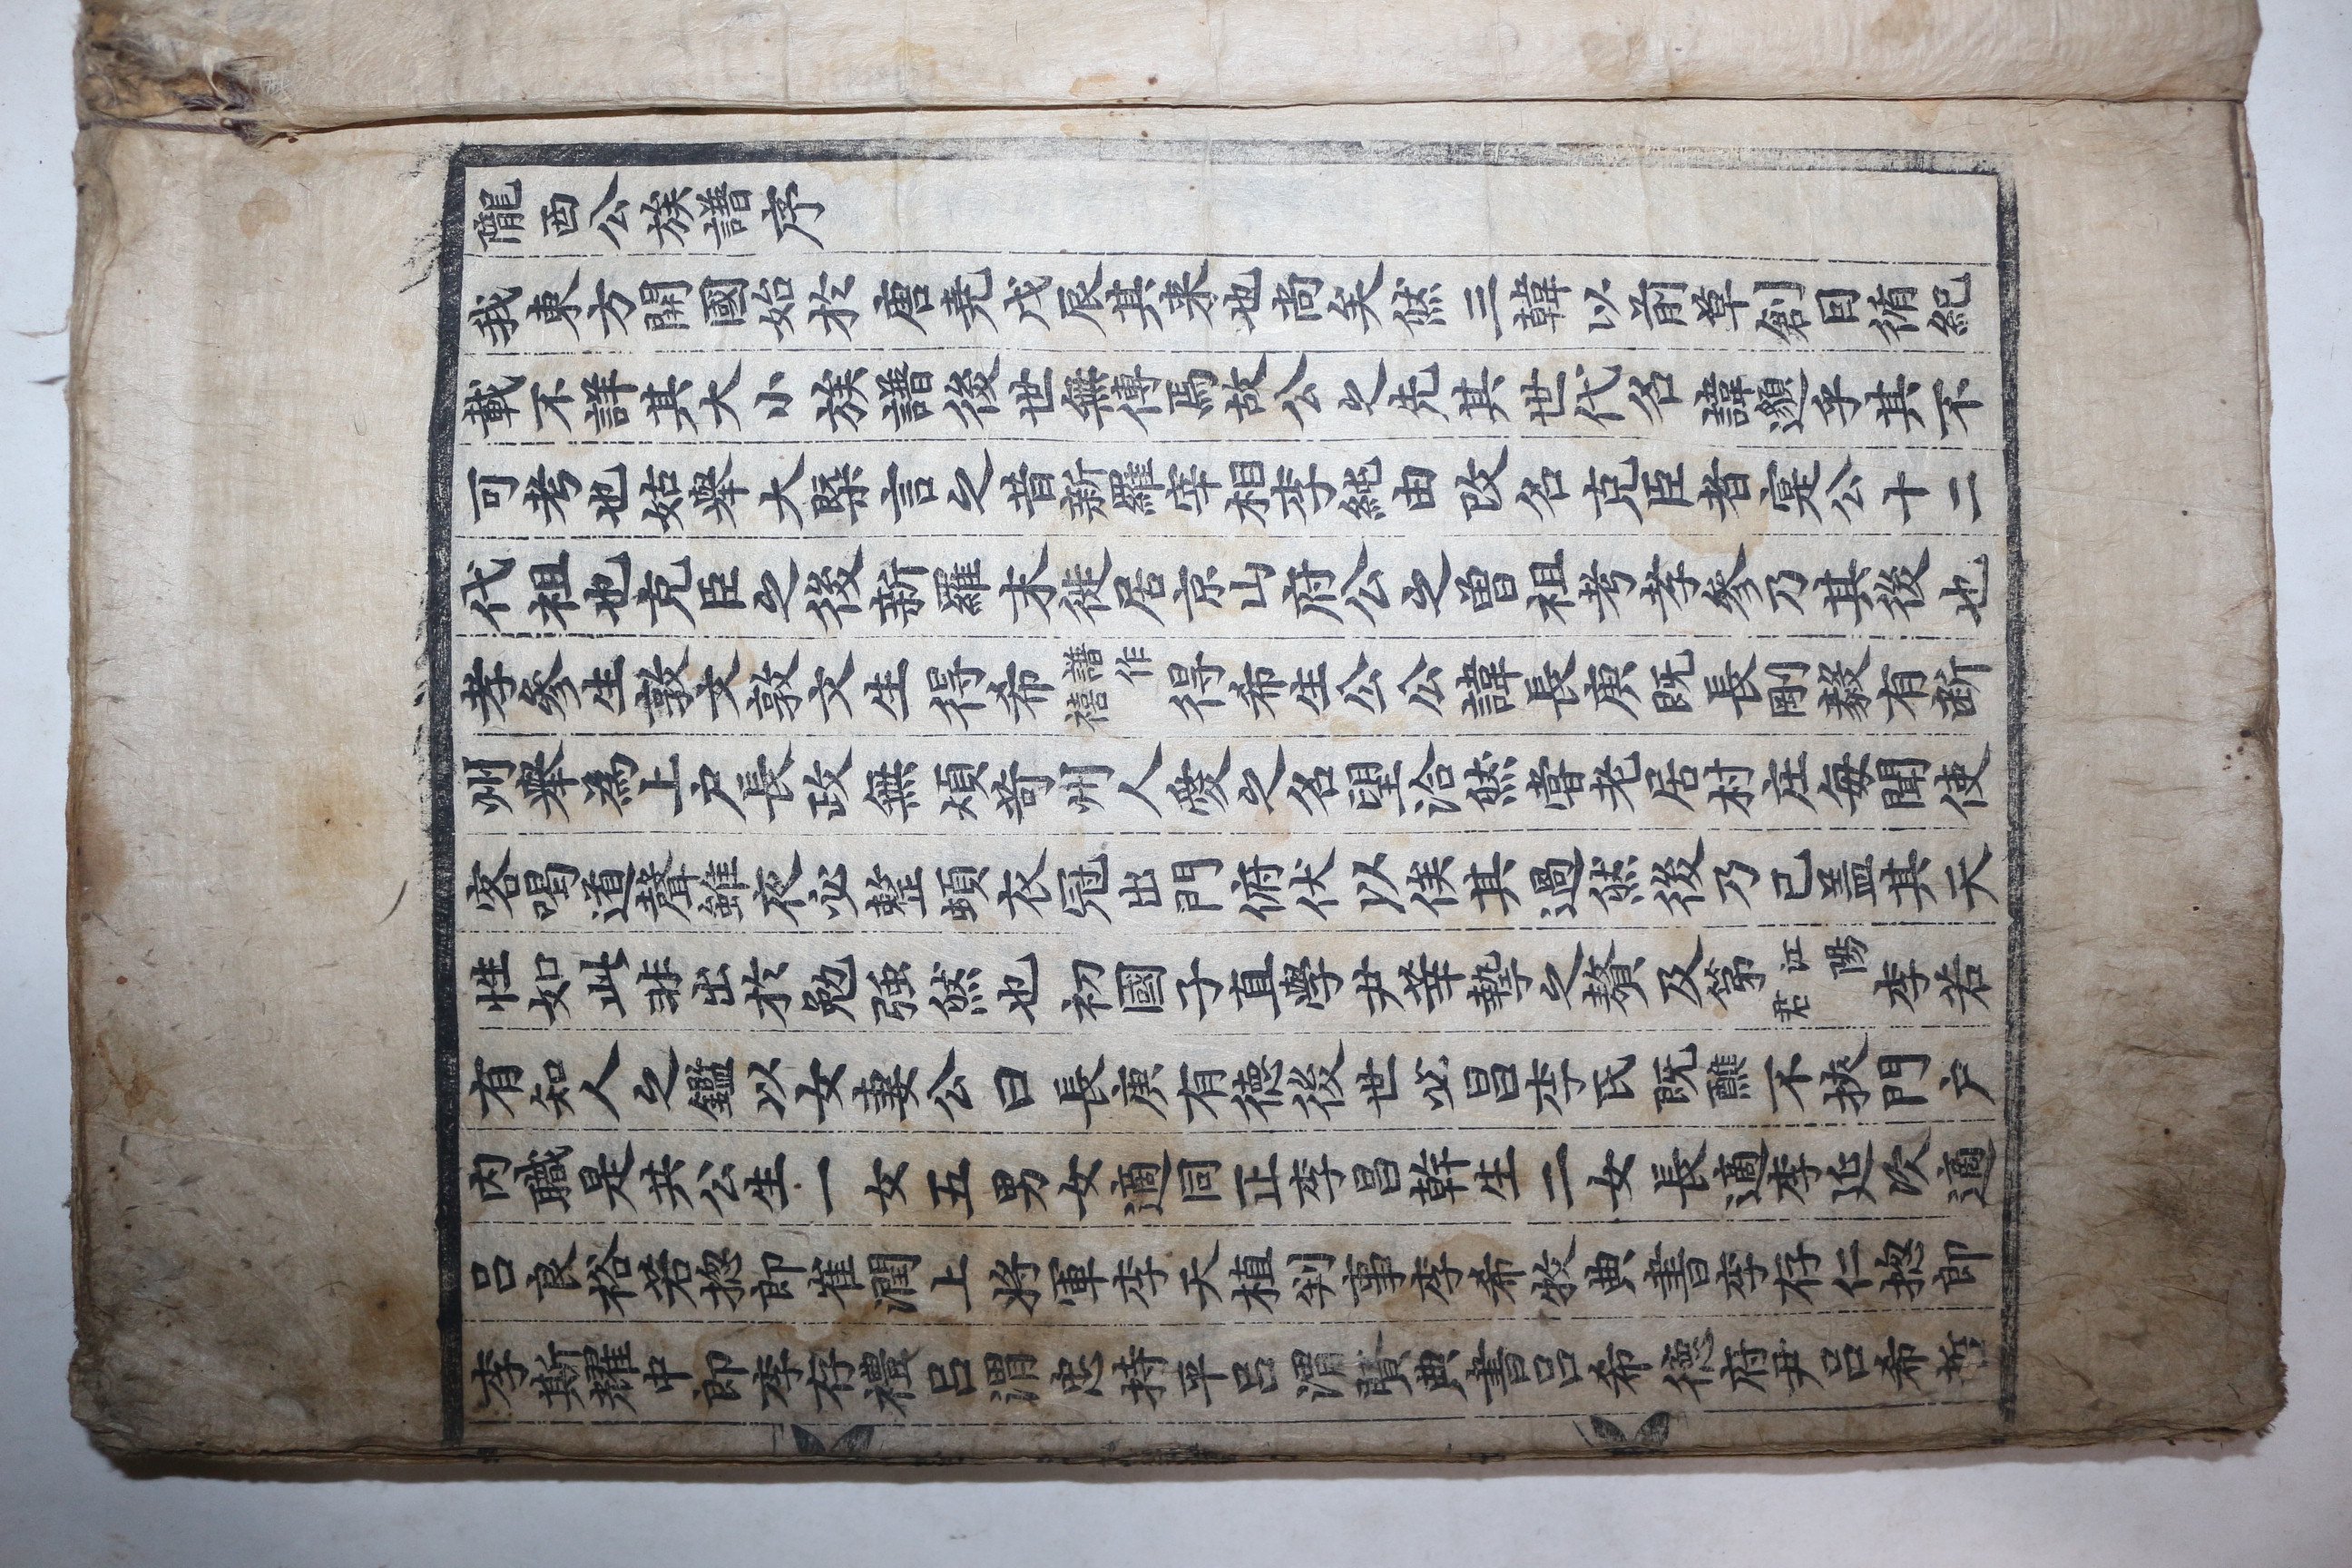 隴西公族譜序
我東方開國始於唐堯戊辰其来也尚矣然三韓以前草創因循紀
載不詳其大小族譜後世無傳焉故公之先其世代名諱邈乎其不
可考也姑擧大槩言之昔新羅宰相李純由改名克臣者寔公十二
代祖也克臣之後新羅末徙居京山府公之曽祖考孝參乃其後也
孝參生敦文敦文生得希譜作禧得希生公公諱長庚既長剛毅有斷
州擧為上戶長政無煩苛州人愛之名望洽然甞老居村庄每聞使
客喝道聲雖夜必整頓衣冠出門俯伏以俟其過然後乃已盖其天
性如此非出於勉強然也初國子直學尹莘摯之贅及第江陽君李若
有知人之鑑以女妻公曰長庚有德後世必昌李氏既醮不挾門戶
内職是共公生一女五男女適同正李昌幹生二女長適李迫次適
呂良裕若揔郎崔潤上將軍李天植判事李希牧典書李存仁揔郎
李斯耀中郎李存禮呂渭忠持平呂渭賢典書呂希德府尹呂希